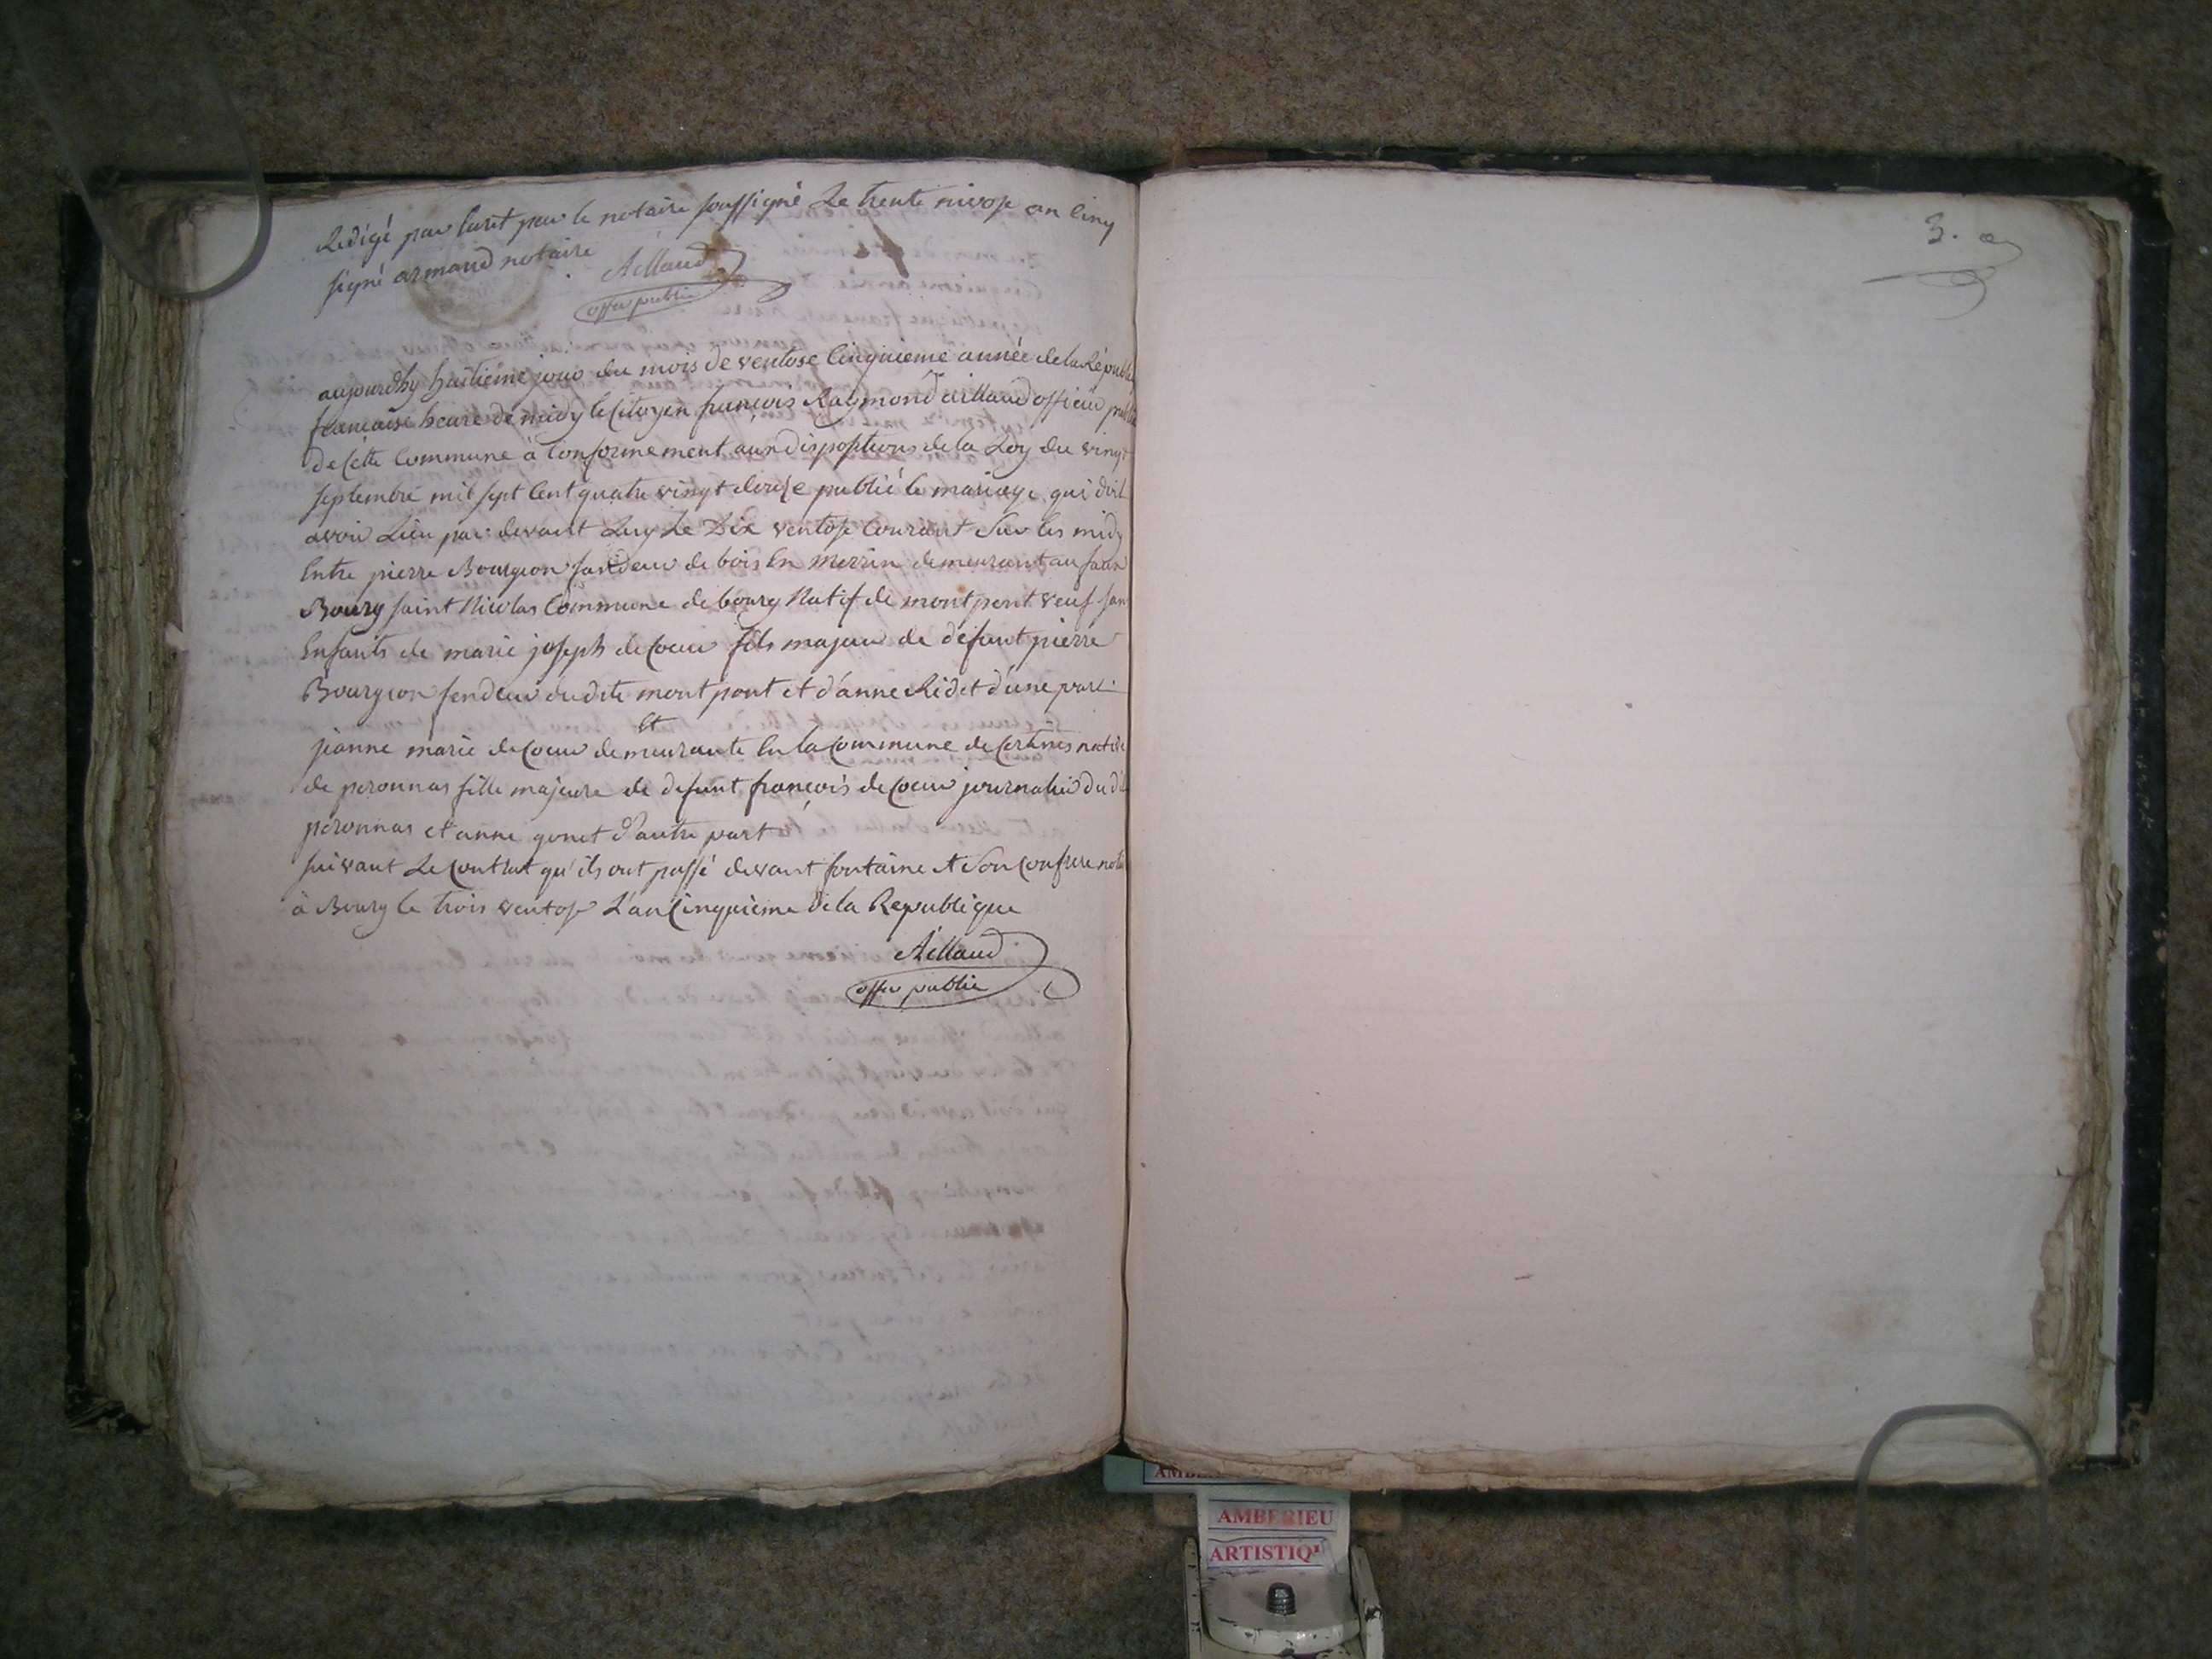 Redigé par Ecrit par le notaire soussigné Le trente nivose an cinq
signé armand notaire
Aillaud
offier public
aujourdhy huitieme jour du mois de ventose Cinquieme année de la Républi
française heure de midy le Citoyen françois Raymond aillaud officier public
de Cette Commune à Conformement aux dispositions de la Loy du vingt
septembre mil sept Cent quatre vingt douze publié le mariage qui doit
avoir Lieu par devant Luy Le Dix ventose Courant Sur les midy
Entre pierre Bourgeon fendeur de bois En merrin demeurant au faux
Bourg saint Nicolas Commune de bourg Natif de montpont veuf san
Enfants de marie joseph decoeur fils majeur de défunt pierre
Bourgeon fendeur dudit montpont et d'anne Ridet d'une part
Et
jeanne marie decoeur demeurante En la Commune de Certines native
de peronnas fille majeure de defunt françois decoeur journalier du di
peronnas et anne gonet d'autre part
suivant Le Contrat qu'ils ont passé devant fontaine et Son Confrere nota
à Bourg le trois ventose L'an Cinquieme de la Republique
Aillaud
offier public
3.
AMBERIEU
ARTISTIQ